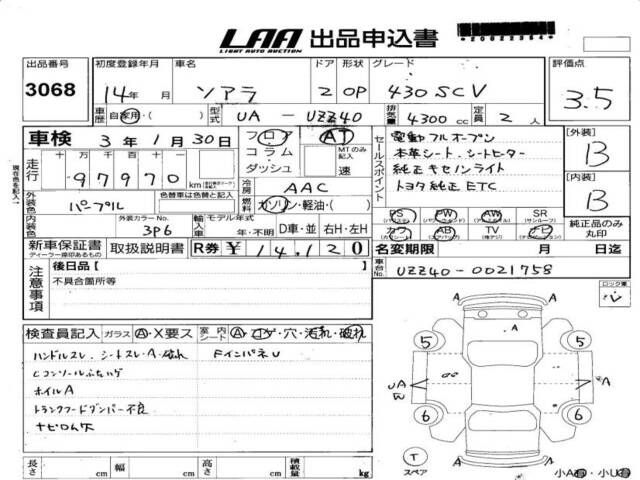 LAA 出品申込書
LIGHT AUTO AUCTION
出品番号 初度登録年月 車名 ドア 形状 グレード 評価点
3068 14年 月 ソアラ 2 OP 430 SCV 3.5
車歴 自家用・( ) 型式 UA - UZZ40 排気量 4300 cc 定員 2 人
車検 3年 1月 30日 フロア AT
コラム MTのみ記入
ダッシュ 速
走行 十 万 千 百 十
97970 km
冷房 AAC
外装色 パープル 色替車は色替と記入 燃料 ガソリン・軽油・( )
内装色 外装カラーNo. 3P6 輸入車 モデル年式 年・不明 D車・並 右H・左H
セールスポイント
電動フルオープン
本革シート、シートヒーター
純正キセノンライト
トヨタ純正ETC
[外装]
B
[内装]
B
PS PW AW SR (サンルーフ)
カワ AB TV ナビ
純正品のみ丸印
新車保証書 取扱説明書 R券 ¥14,120
ディーラー捺印あるもの
名変期限 月 日迄
車台No. UZZ40-0021758
現在色を記入
注意事項
後日品[ ]
不具合箇所等
ロック車
検査員記入 ガラス A・X要ス 室内 シート A・コゲ・穴・汚れ・破れ
ハンドルスレ、シートスレ・A・破れ FインパネU
ホイルA
トランクフードダンパー不良
A A
5 5
UA A
6 6
A A
T
スペア
小A 小U
長さ cm 幅 cm 高さ cm 積載量 kg